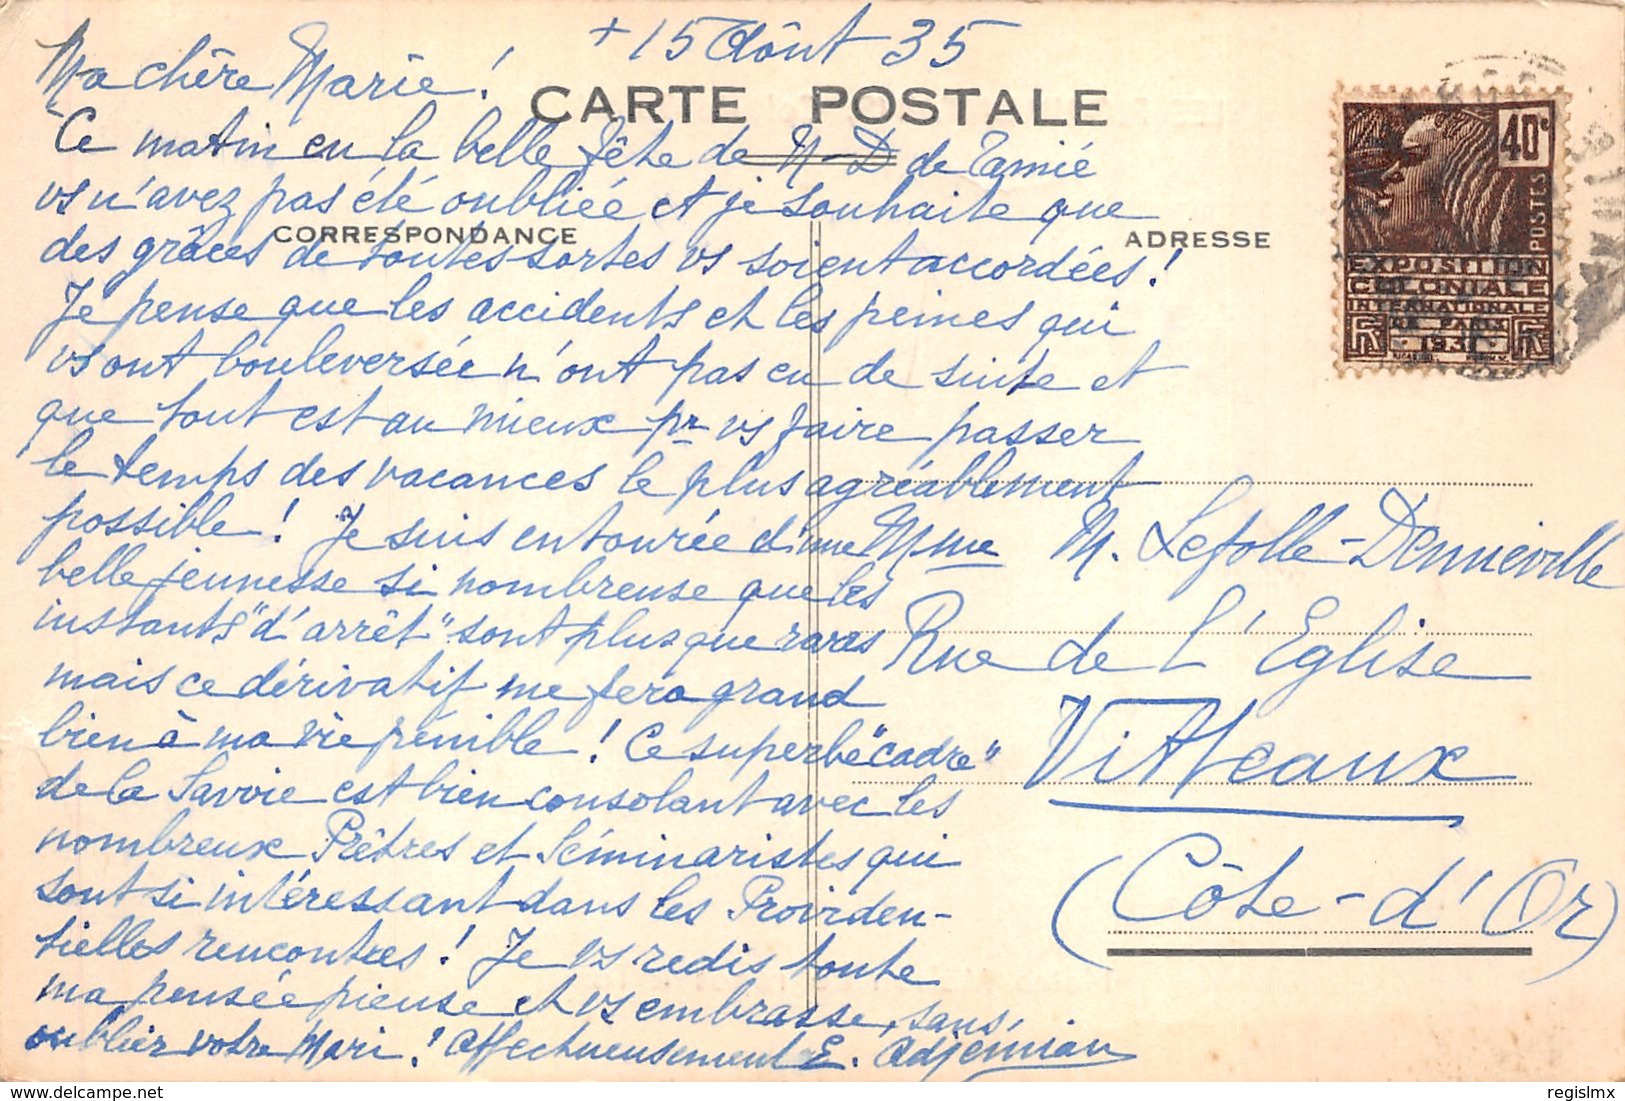 + 15 Août 35
Ma chère Marie !
CARTE POSTALE
Ce matin en la belle fête de N-D de Tamié
vs n'avez pas été oubliée et je souhaite que
CORRESPONDANCE
ADRESSE
des grâces de toutes sortes vs soient accordées !
Je pense que les accidents et les peines qui
vs ont bouleversée n'ont pas eu de suite et
que tout est au mieux pr vs faire passer
le temps des vacances le plus agréablement
possible ! Je suis entourée d'une
belle jeunesse si nombreuse que les
instants "d'arrêt" sont plus que rares
mais ce dérivatif me fera grand
bien à ma vie pénible ! Ce superbe "cadre"
de la Savoie est bien consolant avec les
nombreux Prêtres et Séminaristes qui
sont si intéressant dans les Providen-
tielles rencontres ! Je vs redis toute
ma pensée pieuse et vs embrasse, sans
oublier votre Mari ! Affectueusement E. Adjémian
Mme M. Lefolle-Denneville
Rue de L'Eglise
Vitteaux
(Côte-d'Or)
40c
POSTES
EXPOSITION
COLONIALE
INTERNATIONALE
DE PARIS
1931
RF
RF
delcampe.net
regislmx